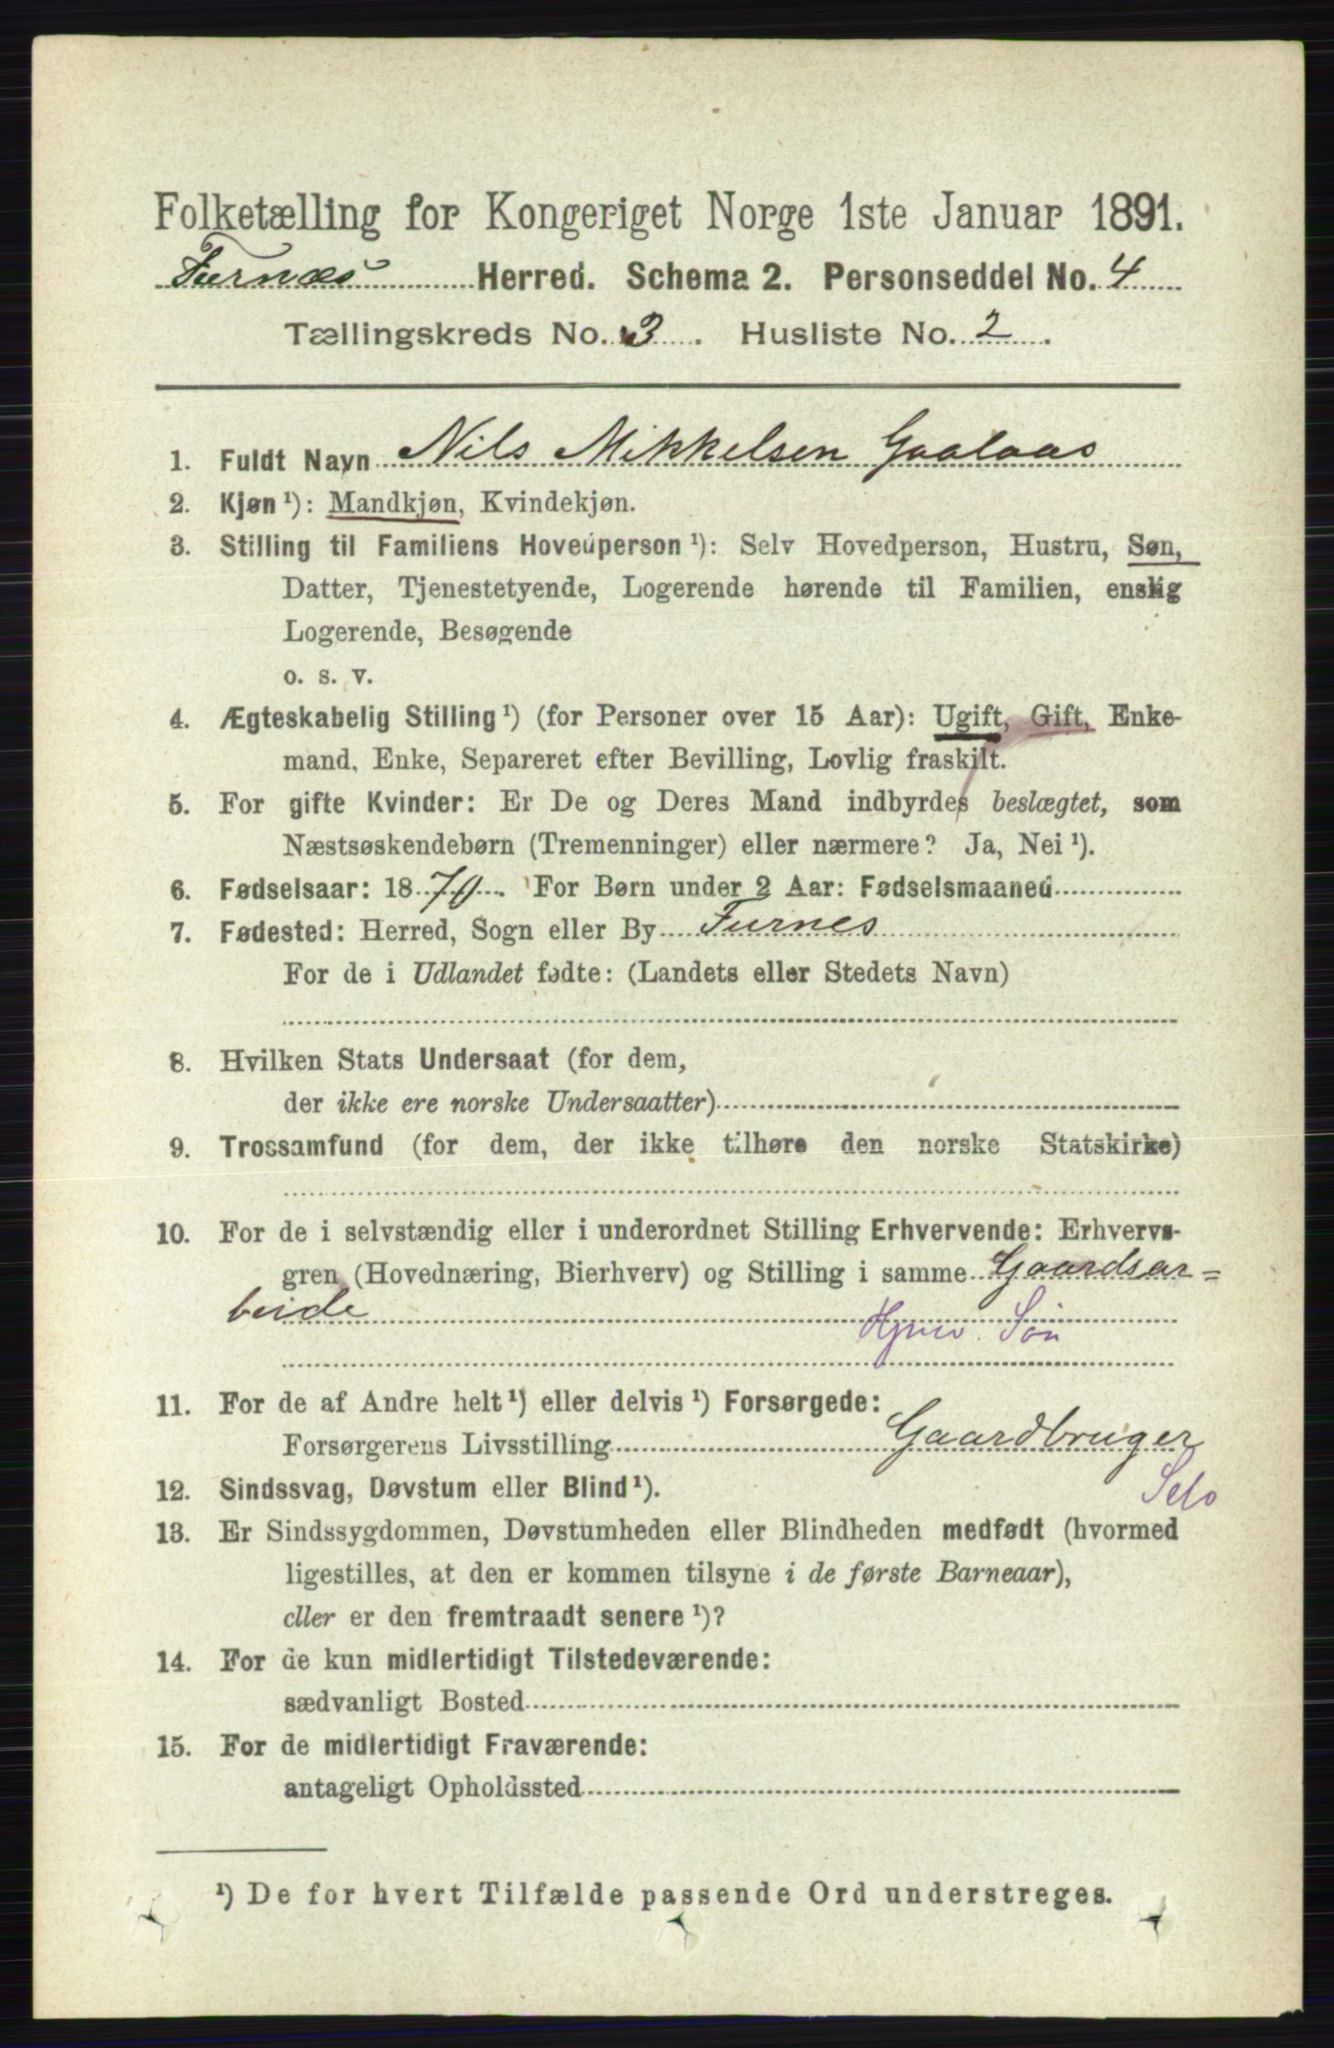 Folketælling for Kongeriget Norge 1ste Januar 1891.
Furnæs Herred. Schema 2. Personseddel No. 4
Tællingskreds No. 3. Husliste No. 2.
1. Fuldt Navn Nils Mikkelsen Gaalaas
2. Kjøn¹): Mandkjøn, Kvindekjøn.
3. Stilling til Familiens Hovedperson¹): Selv Hovedperson, Hustru, Søn,
Datter, Tjenestetyende, Logerende hørende til Familien, enslig
Logerende, Besøgende
o. s. v.
4. Ægteskabelig Stilling¹) (for Personer over 15 Aar): Ugift, Gift, Enke-
mand, Enke, Separeret efter Bevilling, Lovlig fraskilt.
5. For gifte Kvinder: Er De og Deres Mand indbyrdes beslægtet, som
Næstsøskendebørn (Tremenninger) eller nærmere? Ja, Nei¹).
6. Fødselsaar: 1870. For Børn under 2 Aar: Fødselsmaaned
7. Fødested: Herred, Sogn eller By Furnes
For de i Udlandet fødte: (Landets eller Stedets Navn)
8. Hvilken Stats Undersaat (for dem,
der ikke ere norske Undersaatter)
9. Trossamfund (for dem, der ikke tilhøre den norske Statskirke)
10. For de i selvstændig eller i underordnet Stilling Erhvervende: Erhvervs-
gren (Hovednæring, Bierhverv) og Stilling i samme Gaardsar=
beide
Hjmv. Søn
11. For de af Andre helt¹) eller delvis¹) Forsørgede:
Forsørgerens Livsstilling Gaardbruger
Selv
12. Sindssvag, Døvstum eller Blind¹).
13. Er Sindssygdommen, Døvstumheden eller Blindheden medfødt (hvormed
ligestilles, at den er kommen tilsyne i de første Barneaar),
eller er den fremtraadt senere¹)?
14. For de kun midlertidigt Tilstedeværende:
sædvanligt Bosted
15. For de midlertidigt Fraværende:
antageligt Opholdssted
¹) De for hvert Tilfælde passende Ord understreges.